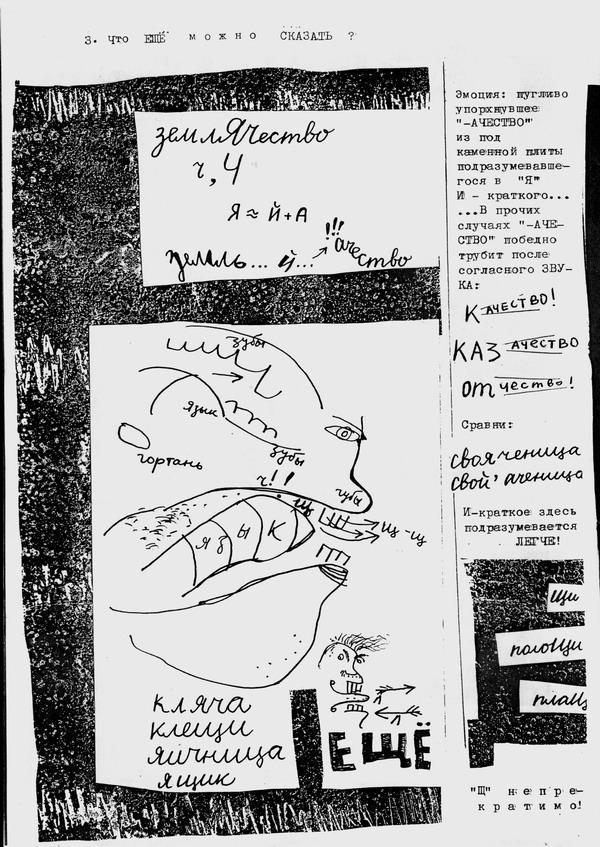 3. Что ЕЩЁ можно СКАЗАТЬ ?
землЯчество
ч, Ч
Я ≈ Й + А
!!!
земль... й... → ачество
Эмоция: пугливо
упорхнувшее
"-АЧЕСТВО"
из под
каменной плиты
подразумевавше-
гося в "Я"
И - краткого...
...В прочих
случаях "-АЧЕ-
СТВО" победно
трубит после
согласного ЗВУ-
КА:
КАЧЕСТВО!
КАЗАЧЕСТВО
ОТЧЕСТВО!
Сравни:
своя ченица
свой' аченица
И-краткое здесь
подразумевается
ЛЕГЧЕ!
щи
полоЩи
плаЩ
"Щ" непре-
кратимо!
зубы
язык
зубы
гортань
ч!!
губы
щ
щ-щ
ЯЗЫК
КЛЯЧА
КЛЕЩИ
ЯИЧНИЦА
ЯЩИК
ЕЩЁ